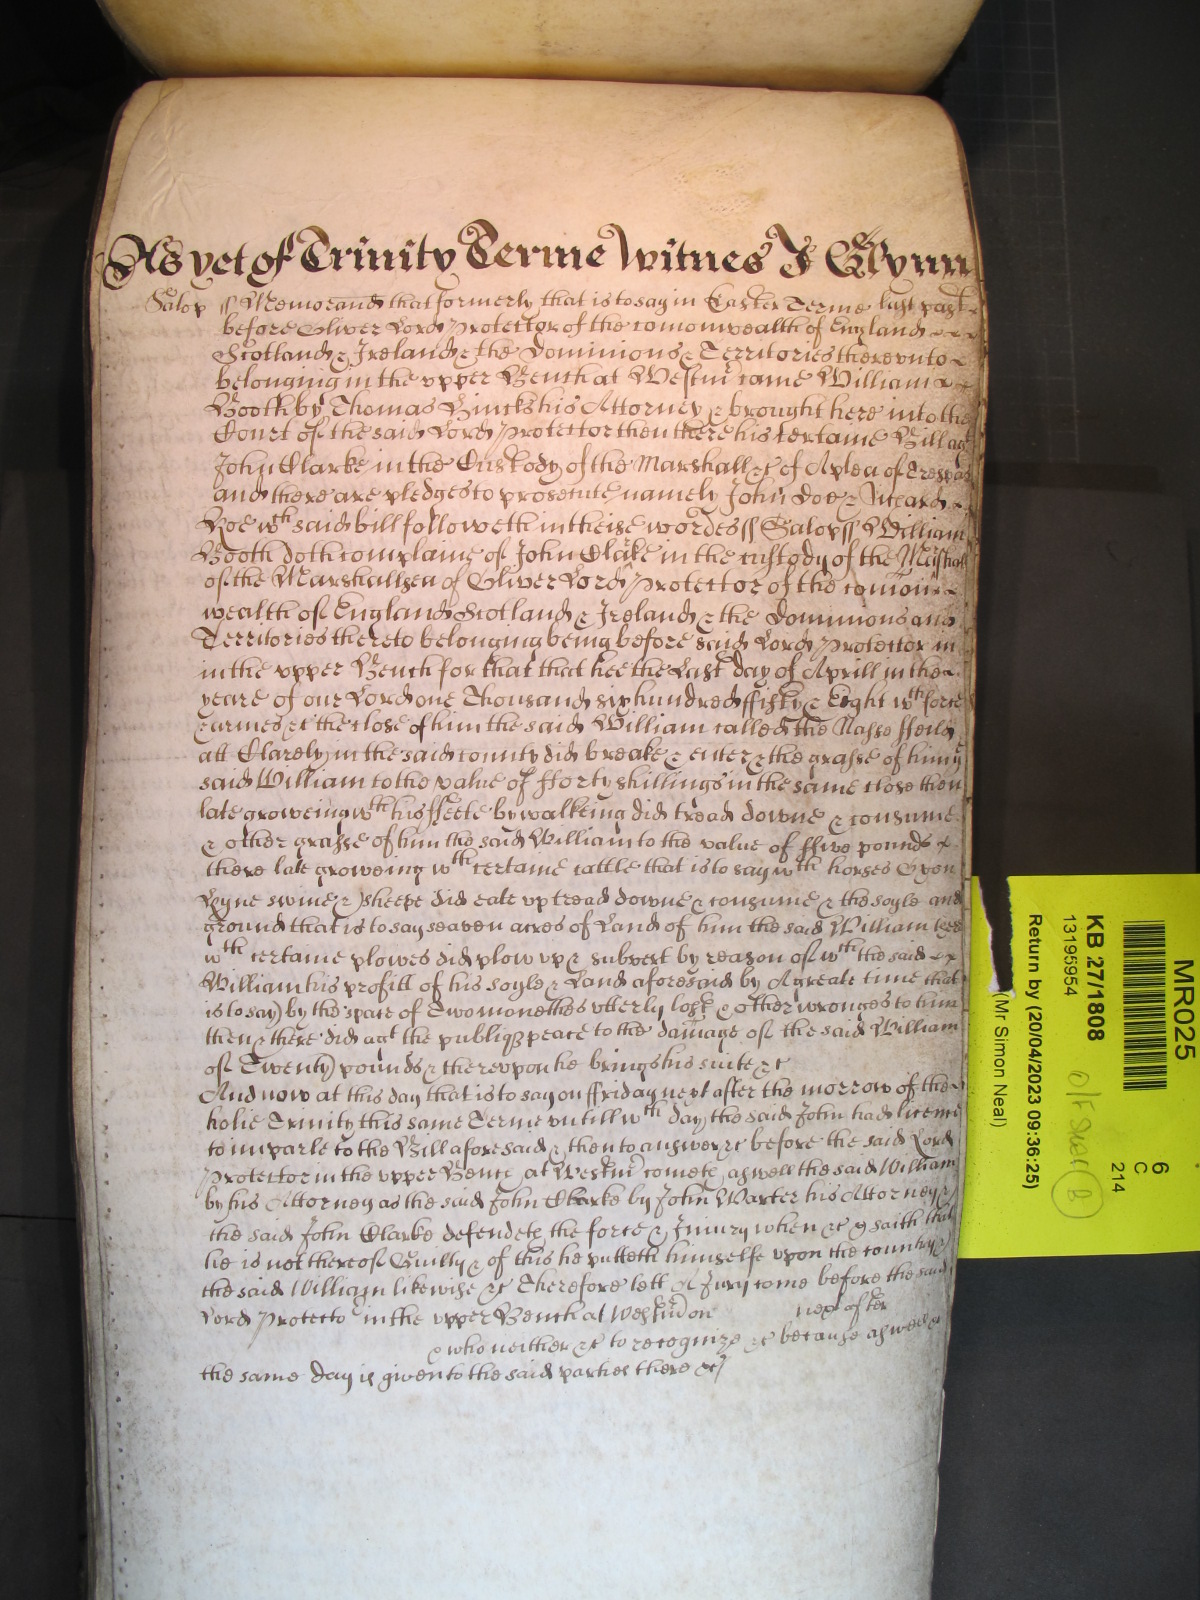 As yet of Trinity Terme Witnes J Glynn
Salop ss Memorand that formerly that is to say in Easter Terme last past
before Oliver Lord Protector of the comonwealth of England
Scotland & Ireland & the Dominions & Territories thereunto
belonging in the upper Bench at Westmr came William
Booth by Thomas Binckshis Attorney & brought here into the
Court of the said Lord Protector then there his certaine Bill agt
John Clarke in the Custody of the Marshall &c of A plea of Trespas
and there are pledges to prosecute namely John Doe & Richard
Roe wch said bill followeth in theise wordes ss Salop ss William
Booth doth complaine of John Clarke in the custody of the Marshall
of the Marshallsea of Oliver Lord Protector of the comon
wealth of England Scotland & Ireland & the Dominions and
Territories thereto belonging being before said Lord Protector in
in the upper Bench for that that hee the Last day of Aprill in the
yeare of our Lord one Thousand six hundred ffifty & Eight wth force
& armes &c the close of him the said William called the ffeild
att Clarely in the said county did breake & enter & the grasse of him ye
said William to the value of fforty shillings in the same close then
late groweing wth his ffeete by walkeing did tread downe & consume
& other grasse of him the said William to the value of ffive pounds
there late groweing wth certaine cattle that is to say wth horses Oxen
Kyne swine & sheepe did eate up tread downe & consume & the soyle and
ground that is to say seaven acres of Land of him the said William
wth certaine plowes did plow up & subvert by reason of wch the said
William his profitt of his soyle & Land aforesaid by A greate time that
is to say by the space of Two monethes utterly lost & other wronges to him
then & there did agt the publiq peace to the damage of the said William
of Twenty pounds & thereupon he brings his suite &c
And now at this day that is to say on ffriday next after the morrow of the
holie Trinity this same Terme untill wch day the said John had licence
to imparle to the Bill aforesaid & then to answer &c before the said Lord
Protector in the upper Bench at Westmr cometh aswell the said William
by his Attorney as the said John Clarke by John Warter his Attorney &
the said John Clarke defendeth the force & Injury when &c & saith that
he is not thereof Guilty & of this he putteth himselfe upon the country &
the said William likewise &c Therefore lett A Jury come before the said
Lord Protector in the upper Bench at Westmr on next after
& who neither &c to recognize &c because aswell &c
the same day is given to the said parties there &c
MR025
KB 27/1808
13195954
Return by (20/04/2023 09:36:25)
(Mr Simon Neal)
6
C
214
B